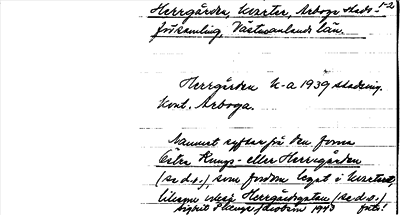 Herrgården, kvarter, Arboga stads- 1-2
församling, Västmanlands län.
Herrgården K-a 1939 stadsing.
kont. Arboga.
Namnet syftar på den forna
Öster Kungs- eller Herrgården
(se d.o.), som fordom legat i kvarteret,
liksom också Herrgårdsgatan (se d.o.)
Jacobson 1943 forts!